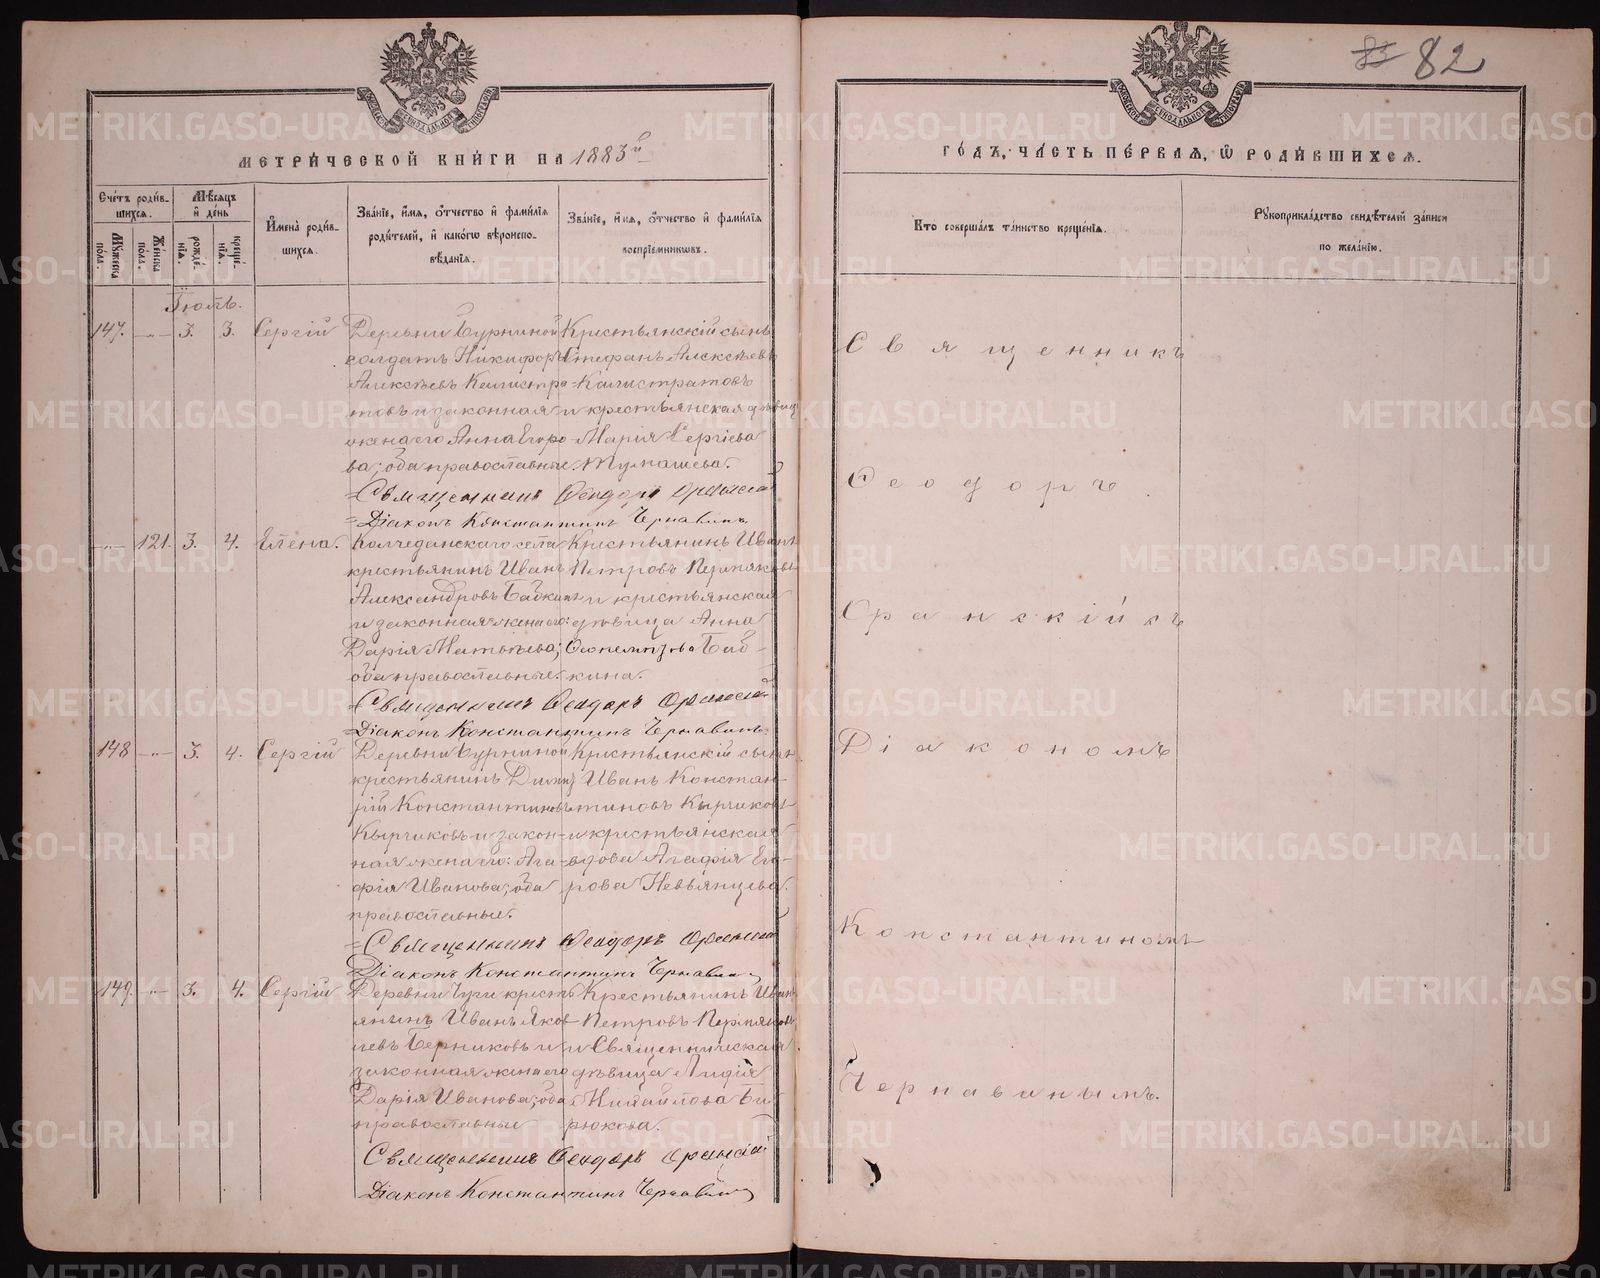 82
МЕТРИЧЕСКОЙ КНИГИ НА 1883й
ГОДЪ, ЧАСТЬ ПЕРВАЯ, Ѡ РОДИВШИХСЯ.
Счетъ родившихся.
Мужеска пола.
Женска пола.
Мѣсяцъ и день
рожденія.
крещенія.
Имена родившихся.
Званіе, имя, отчество и фамилія
родителей, и какогѡ вѣроиспо-
вѣданія.
Званіе, имя, отчество и фамилія
воспріемниковъ.
Кто совершалъ таинство крещенія.
Рукоприкладство свидѣтелей записи
по желанію.
Іюль.
147. —"— 3. 3. Сергій
Деревни Бурниной
солдатъ Никифоръ
Алексѣевъ Калистра-
товъ и законная
жена его Анна Егоро-
ва; оба православные.
Крестьянскій сынъ
Стефанъ Алексѣевъ
Калистратовъ
и крестьянская дѣвица
Марія Сергіева
Тумашева.
Священникъ Ѳеодоръ Оранскій
Діаконъ Константинъ Чернавинъ
—"— 121. 3. 4. Елена.
Колчеданскаго села
крестьянинъ Иванъ
Александровъ Бабкинъ
и законная жена его:
Дарія Матвѣева;
оба православные.
Крестьянинъ Иванъ
Петровъ Пермяковъ
и крестьянская
дѣвица Анна
Баб-
кина.
Священникъ Ѳеодоръ Оранскій
Діаконъ Константинъ Чернавинъ
148 —"— 3. 4. Сергій
Деревни Бурниной
крестьянинъ Димит
рій Константиновъ
Кырчиковъ и закон-
ная жена его: Ага-
фія Иванова; оба
православные.
Крестьянскій сынъ
Иванъ Констан-
тиновъ Кырчиковъ
и крестьянская
вдова Агафія Его-
рова Невьянцева.
Священникъ Ѳеодоръ Оранскій
Діаконъ Константинъ Чернавинъ
149. —"— 3. 4. Сергій
Деревни Чуги кресть
янинъ Иванъ Яков
левъ Берниковъ и
законная жена его
Дарія Иванова; оба
православные
Крестьянинъ Иванъ
Петровъ Пермяковъ
и Священническая
дѣвица Лидія
Михайлова Би
рюкова.
Священникъ Ѳеодоръ Оранскій
Діаконъ Константинъ Чернавинъ
Священникъ
Ѳеодоръ
Оранскій съ
Діакономъ
Константиномъ
Чернавинымъ.
METRIKI.GASO-URAL.RU